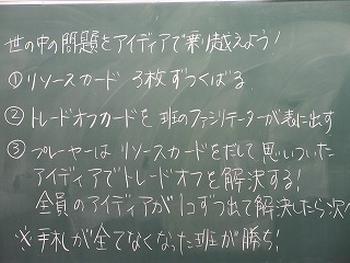 世の中の問題をアイディアで乗り越えよう!
① リソースカード 3枚ずつくばる
② トレードオフカードを班のファシリテーターが表に出す
③ プレーヤーはリソースカードをだして思いついた
アイディアでトレードオフを解決する!
全員のアイディアが1コずつ出て解決したら次へ
※手札が全てなくなった班が勝ち!